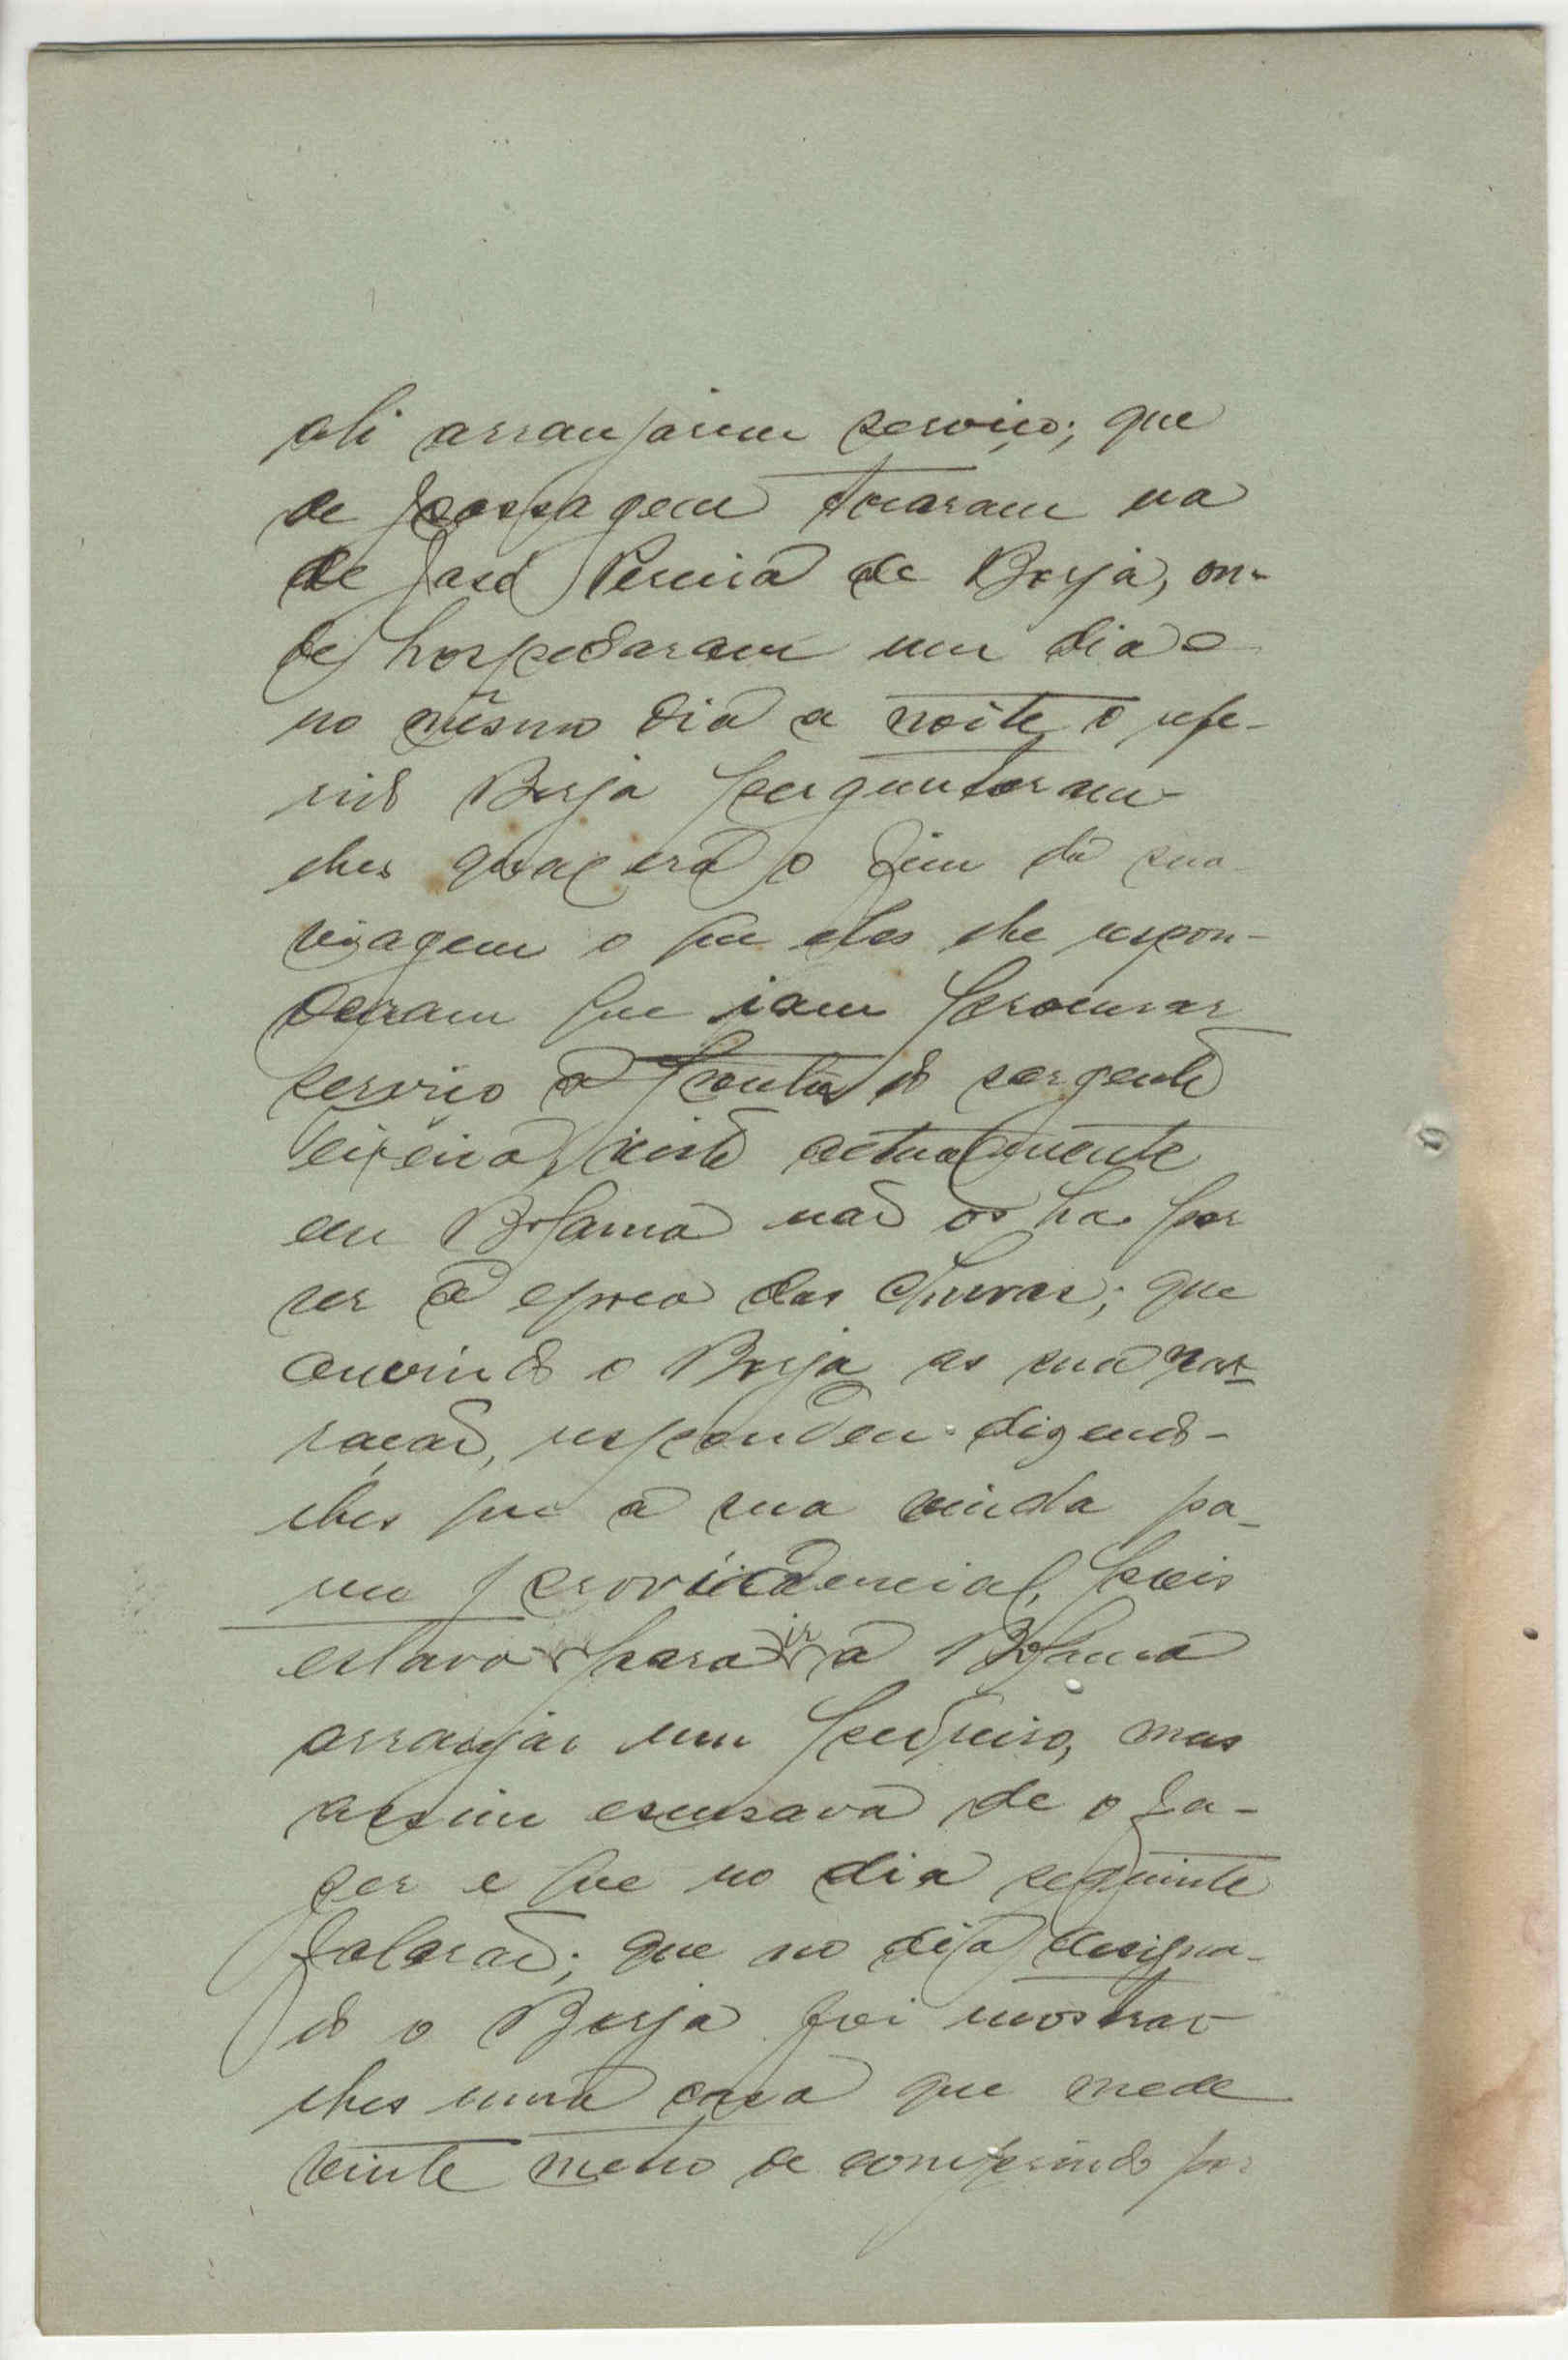 ali arranjarem serviço; que
de passagem tocaram na
de José Pereira de Borja, on-
de hospedaram um dia e
no mesmo dia a noite o refe-
rido Borja perguntaram-
lhes qual era o fim da sua
viagem o que eles lhe respon-
deram que iam procurar
serviço a do sargento
Teixeira, visto actualmente
em Bolama não os ha por
ser a epoca das chuvas; que
ouvindo o Borja as sua nar-
ração, respondeu dizendo-
lhes que a sua vinda pa-
rece providencial, pois
estava para ir a Bolama
arranjar um pedreiro, mas
assim escusava de o fa-
zer e que no dia seguinte
falarão; que no dia designa-
do o Borja foi mostrar-
lhes numa casa que mede
vinte metro de comprimdo por